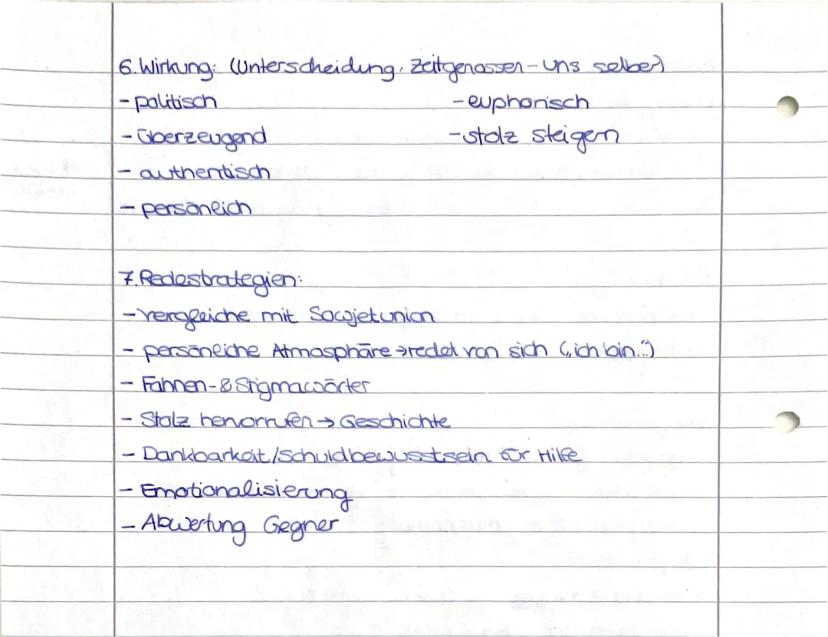 6. Wirkung: (Unterscheidung: Zeitgenossen - uns selber)
- politisch - euphorisch
- überzeugend - stolz steigern
- authentisch
- persönlich
7. Redestrategien:
- Vergleiche mit Sowjetunion
- persönliche Atmosphäre → redet von sich („ich bin...")
- Fahnen- & Stigmawörter
- Stolz hervorrufen → Geschichte
- Dankbarkeit/Schuldbewusstsein für Hilfe
- Emotionalisierung
- Abwertung Gegner